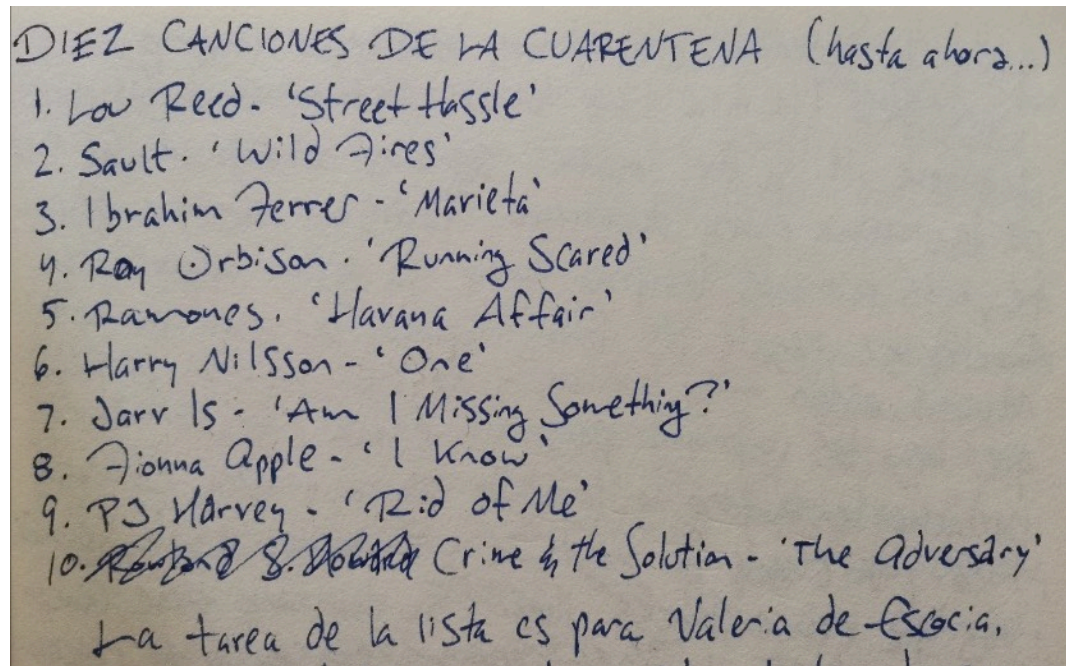 DIEZ CANCIONES DE LA CUARENTENA (hasta ahora...)
1. Lou Reed - 'Street Hassle'
2. Sault. 'Wild Fires'
3. Ibrahim Ferrer - 'Marieta'
4. Roy Orbison. 'Running Scared'
5. Ramones. 'Havana Affair'
6. Harry Nilsson - 'One'
7. Jarv Is - 'Am I Missing Something?'
8. Fionna Apple - 'I Know'
9. PJ Harvey - 'Rid of Me'
10. Crime & the Solution - 'The Adversary'
La tarea de la lista es para Valeria de Escocia,